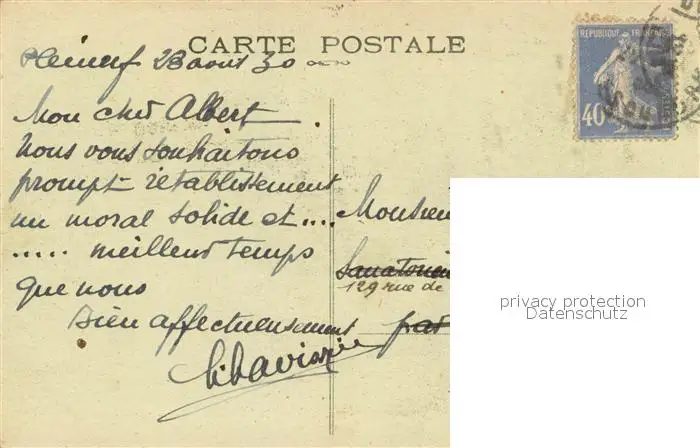 CARTE POSTALE
Pleneuf 23 aout 30
Mon cher Albert
Nous vous souhaitons
prompt rétablissement
un moral solide et ....
..... meilleur temps
que nous
Bien affectueusement
REPUBLIQUE FRANCAISE
40
Monsieu
Sanatorium
129 rue de
par
privacy protection
Datenschutz